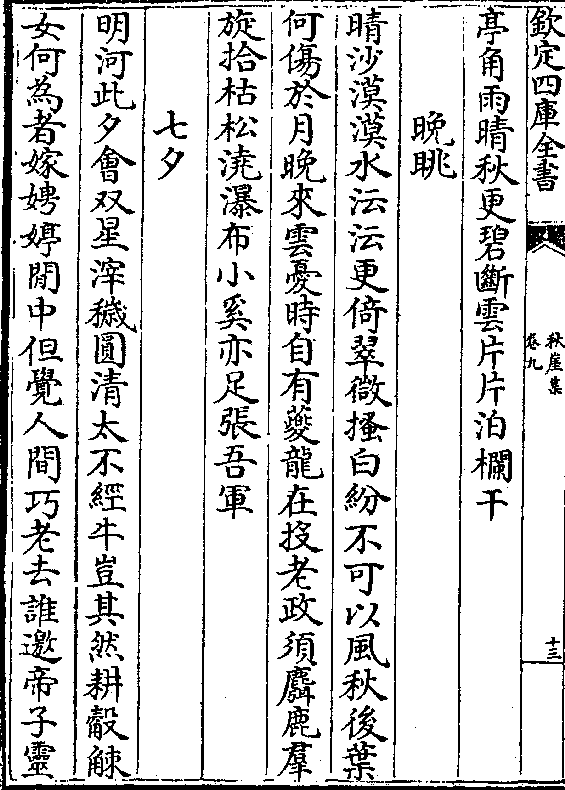 欽定四庫全書
秋崖集
卷九
十三
亭角雨晴秋更碧斷雲片片泊欄干
晚眺
晴沙漠漠水沄沄更倚翠微搔白紛不可以風秋後葉
何傷於月晚來雲憂時自有夔龍在投老政須麕鹿羣
旋拾枯松澆瀑布小奚亦足張吾軍
七夕
明河此夕會双星滓穢圓清太不經牛豈其然耕觳觫
女何為者嫁娉婷閒中但覺人間巧老去誰邀帝子靈